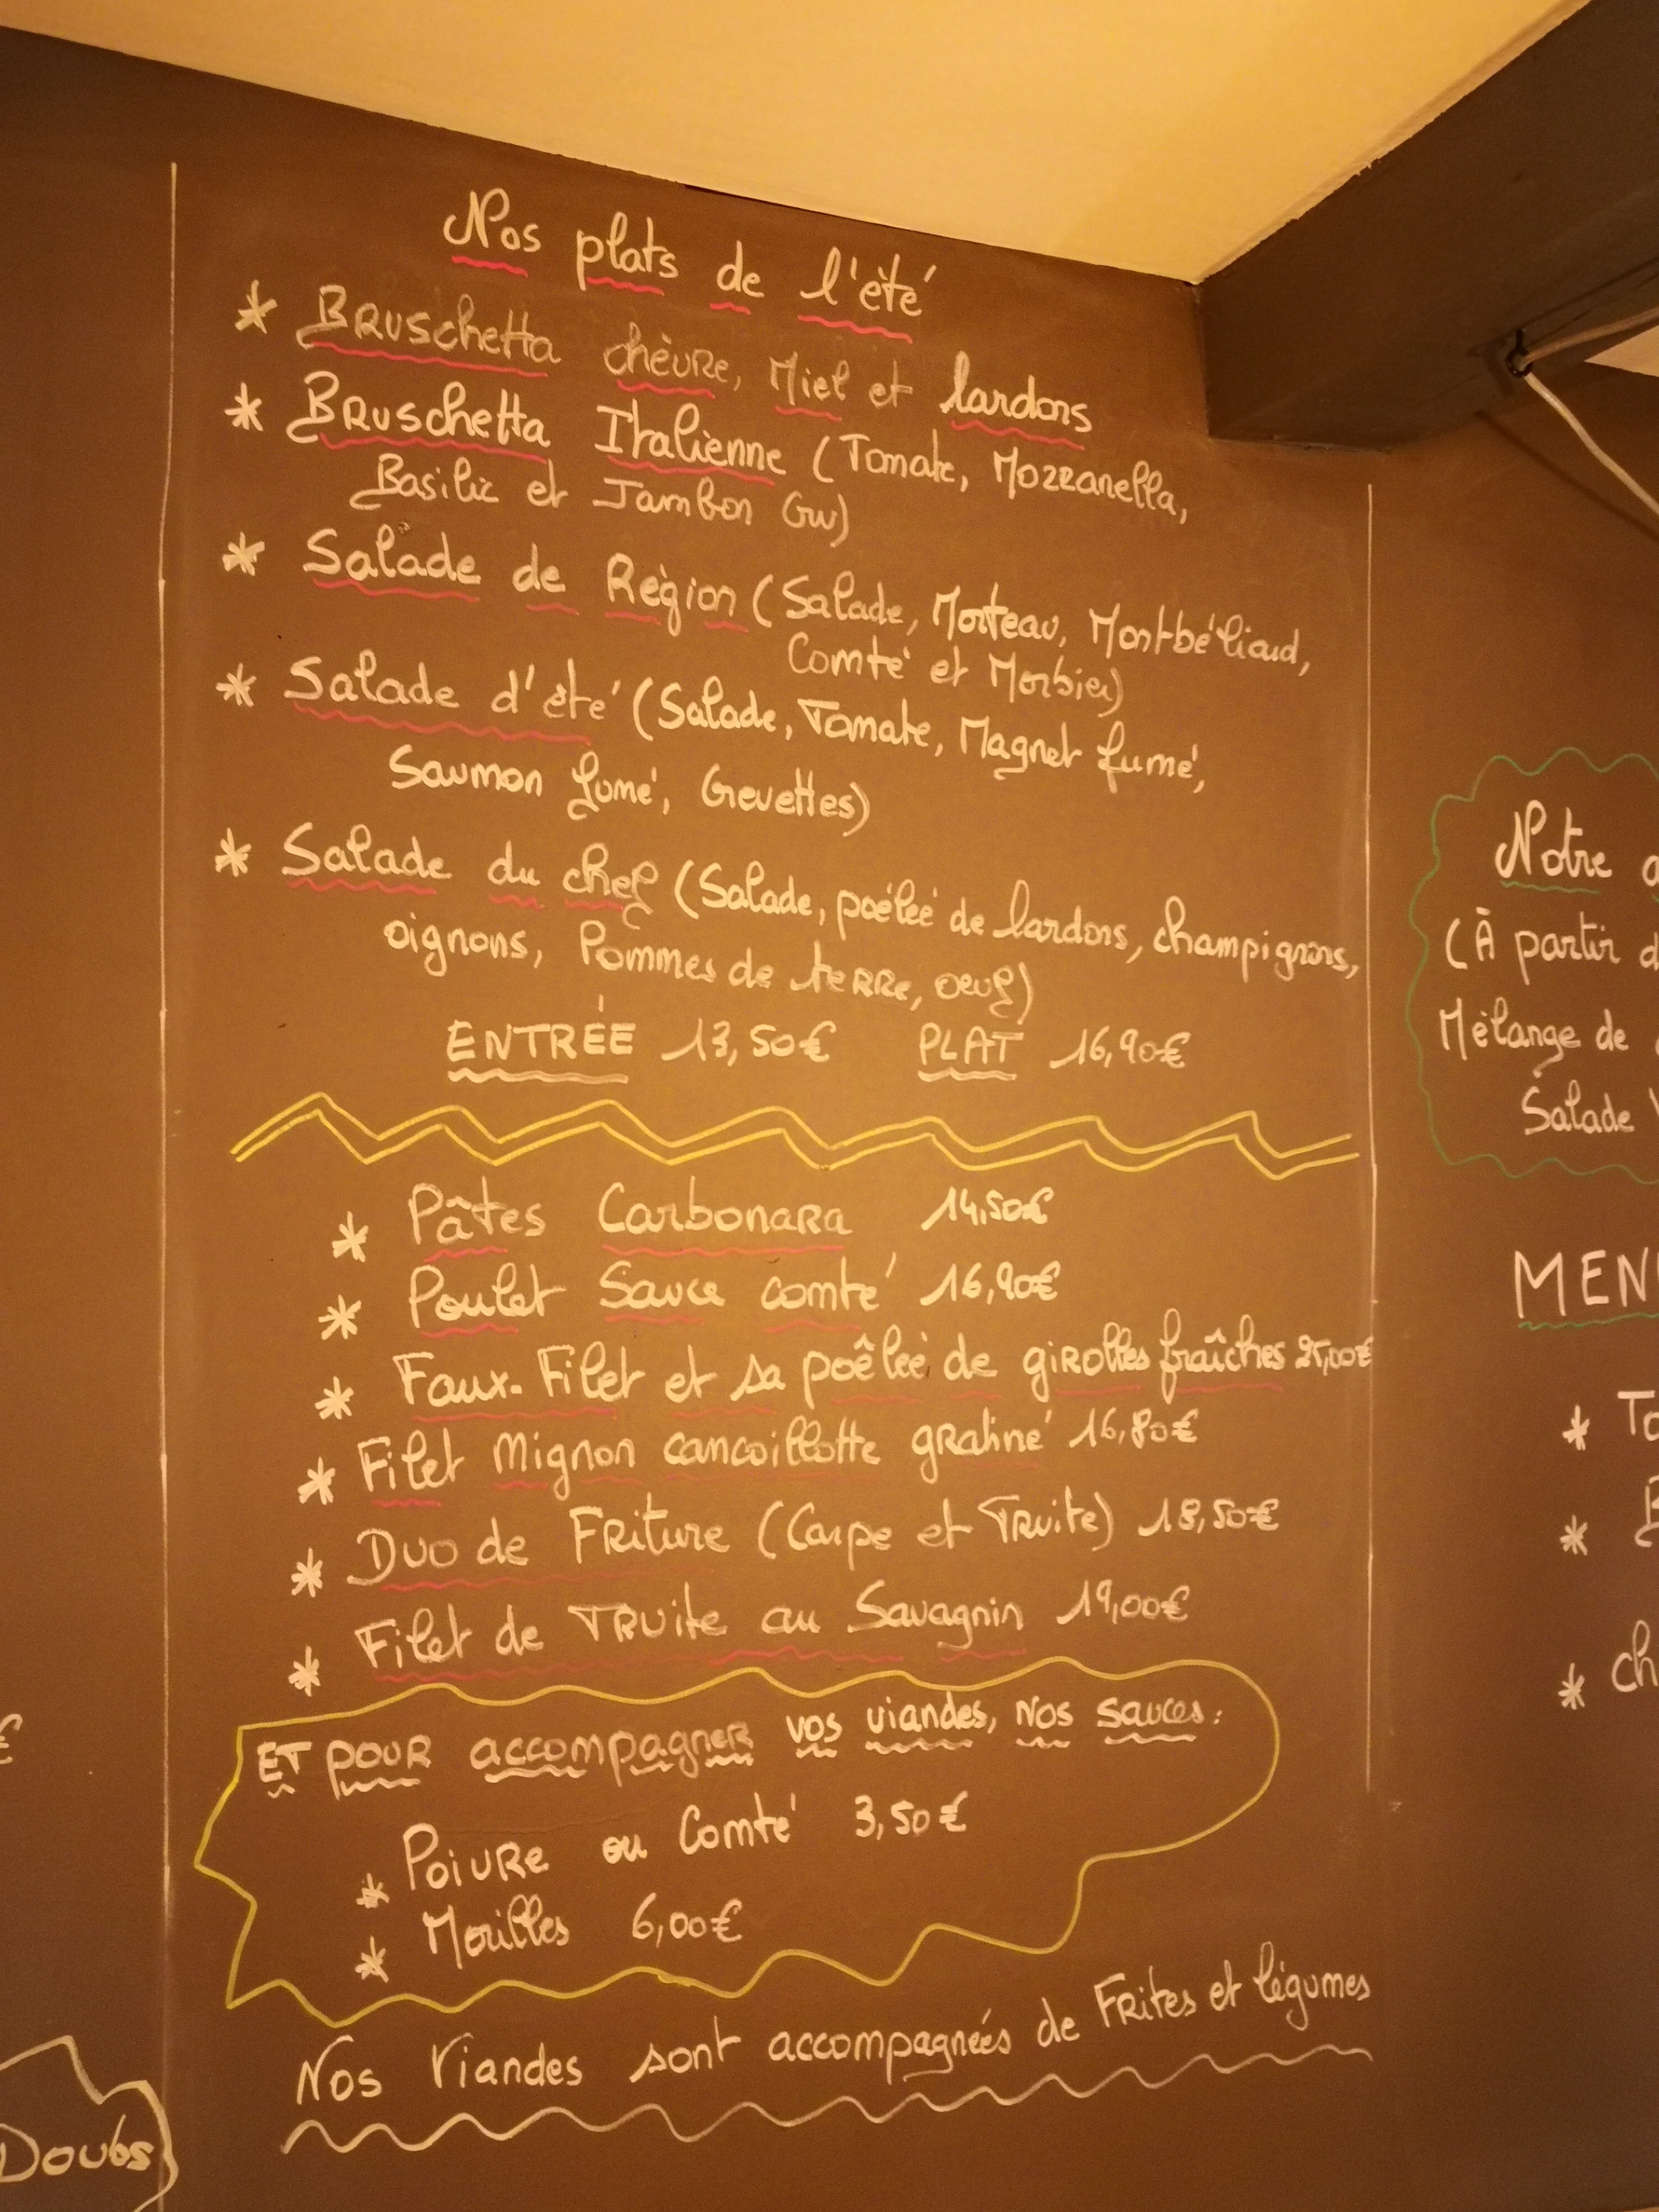 Nos plats de l'été
* Bruschetta chèvre, Miel et lardons
* Bruschetta Italienne (Tomate, Mozzarella,
Basilic et Jambon Cru)
* Salade de Région (Salade, Morteau, Montbéliard,
Comté et Morbier)
* Salade d'été (Salade, Tomate, Magret fumé,
Saumon fumé, Crevettes)
* Salade du chef (Salade, poêlée de lardons, champignons,
oignons, Pommes de terre, oeuf)
ENTRÉE 13,50€ PLAT 16,90€
* Pâtes Carbonara 14,50€
* Poulet Sauce comté 16,90€
* Faux-Filet et sa poêlée de girolles fraîches 25,00€
* Filet Mignon cancoillotte gratiné 16,80€
* Duo de Friture (Carpe et Truite) 18,50€
* Filet de Truite au Savagnin 19,00€
ET POUR accompagner vos viandes, nos sauces:
* Poivre ou Comté 3,50€
* Morilles 6,00€
Nos Viandes sont accompagnées de Frites et légumes
Notre
(À partir
Mélange de
Salade
MEN
*
*
*
€
Doubs